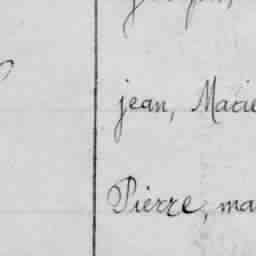 jean, Marie
Pierre, ma